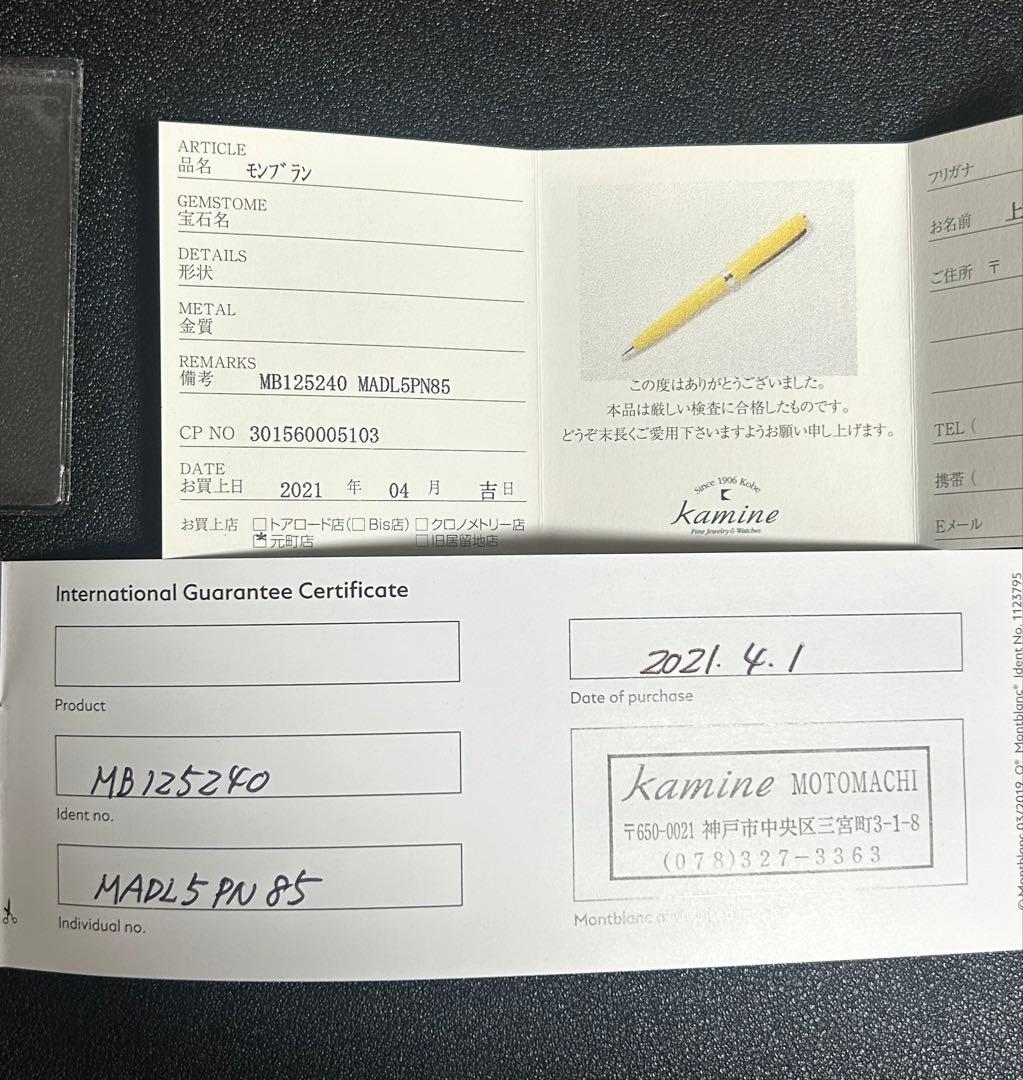 ARTICLE
品名 モンブラン
GEMSTOME
宝石名
DETAILS
形状
METAL
金質
REMARKS
備考 MB125240 MADL5PN85
CP NO 301560005103
DATE
お買上日 2021 年 04 月 吉日
お買上店 □トアロード店(□Bis店) □クロノメトリー店
□元町店 □旧居留地店
この度はありがとうございました。
本品は厳しい検査に合格したものです。
どうぞ末長くご愛用下さいますようお願い申し上げます。
Since 1906 Kobe
kamine
Fine Jewelry & Watches
フリガナ
お名前 上
ご住所 〒
TEL (
携帯 (
Eメール
International Guarantee Certificate
Product
MB125240
Ident no.
MADL5PN85
Individual no.
2021. 4. 1
Date of purchase
kamine MOTOMACHI
〒650-0021 神戸市中央区三宮町3-1-8
(078)327-3363
Montblanc authorised
© Montblanc 03/2019 Montblanc® Ident No. 1123795